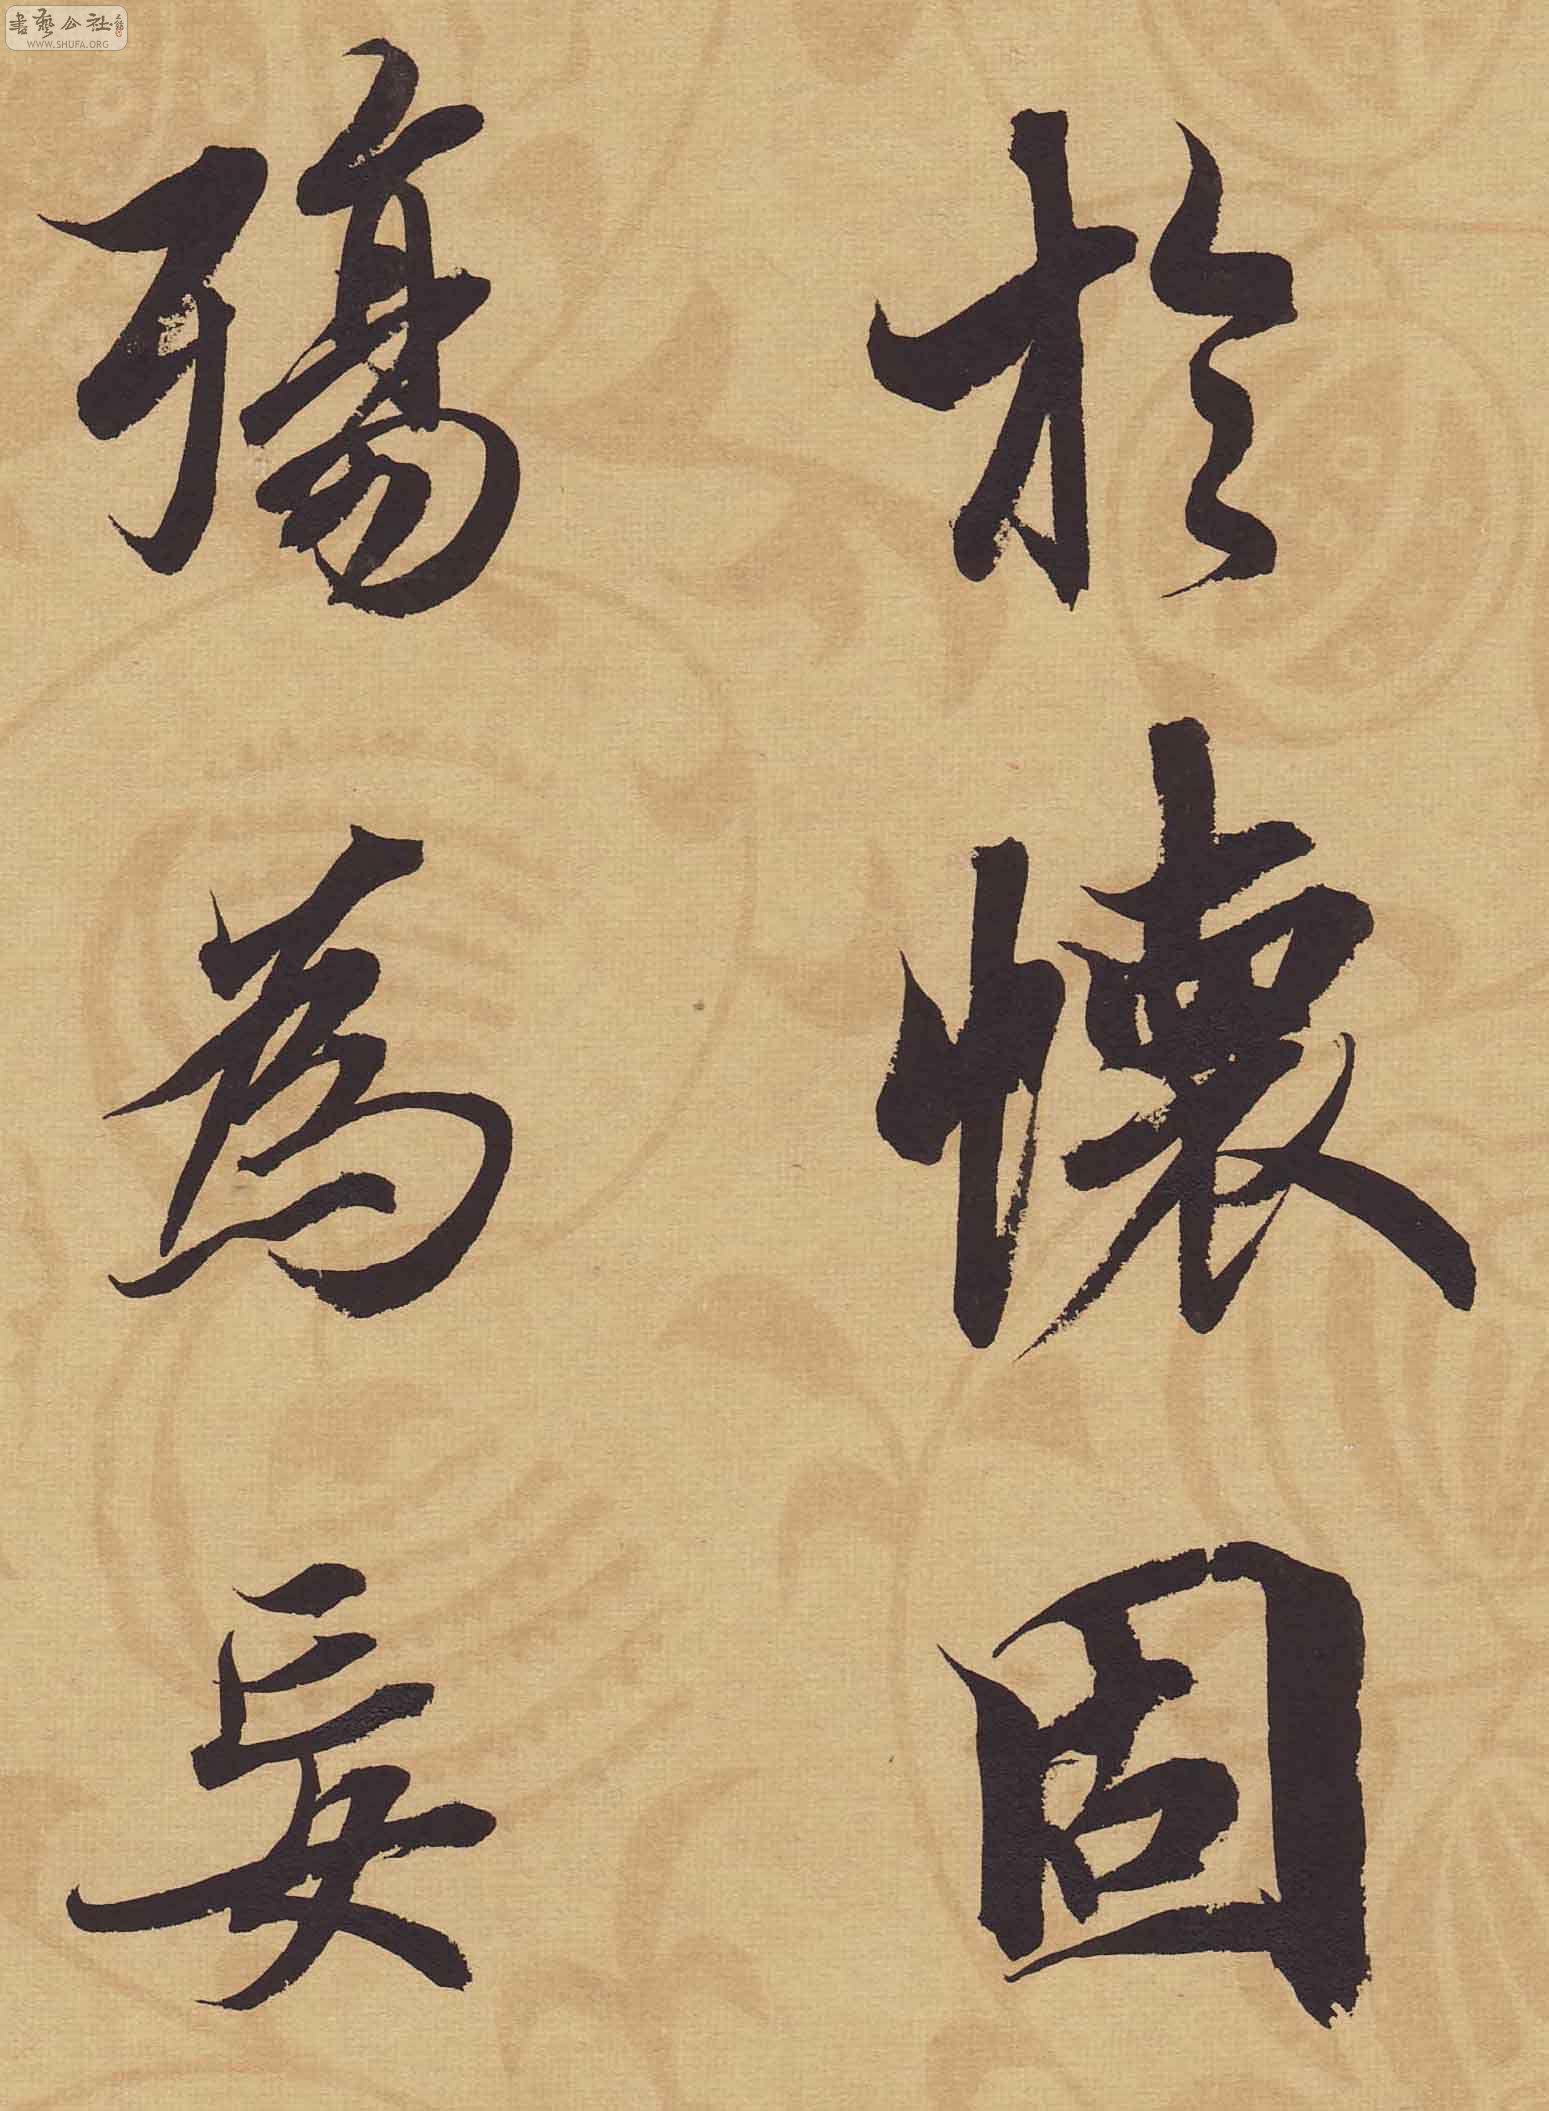 於懷固
殤為妄
書藝公社
WWW.SHUFA.ORG